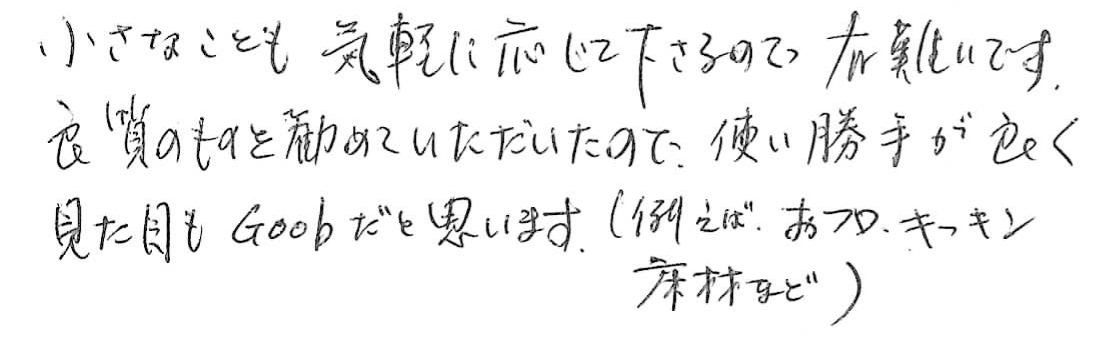 小さなことも気軽に応じて下さるので有難いです.
良質のものを勧めていただいたので、使い勝手が良く
見た目もGoodだと思います.(例えば.おフロ.キッキン
床材など)